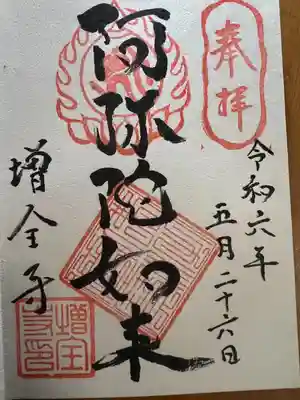 奉拝
令和六年
五月二十六日
阿弥陀如来
増全寺